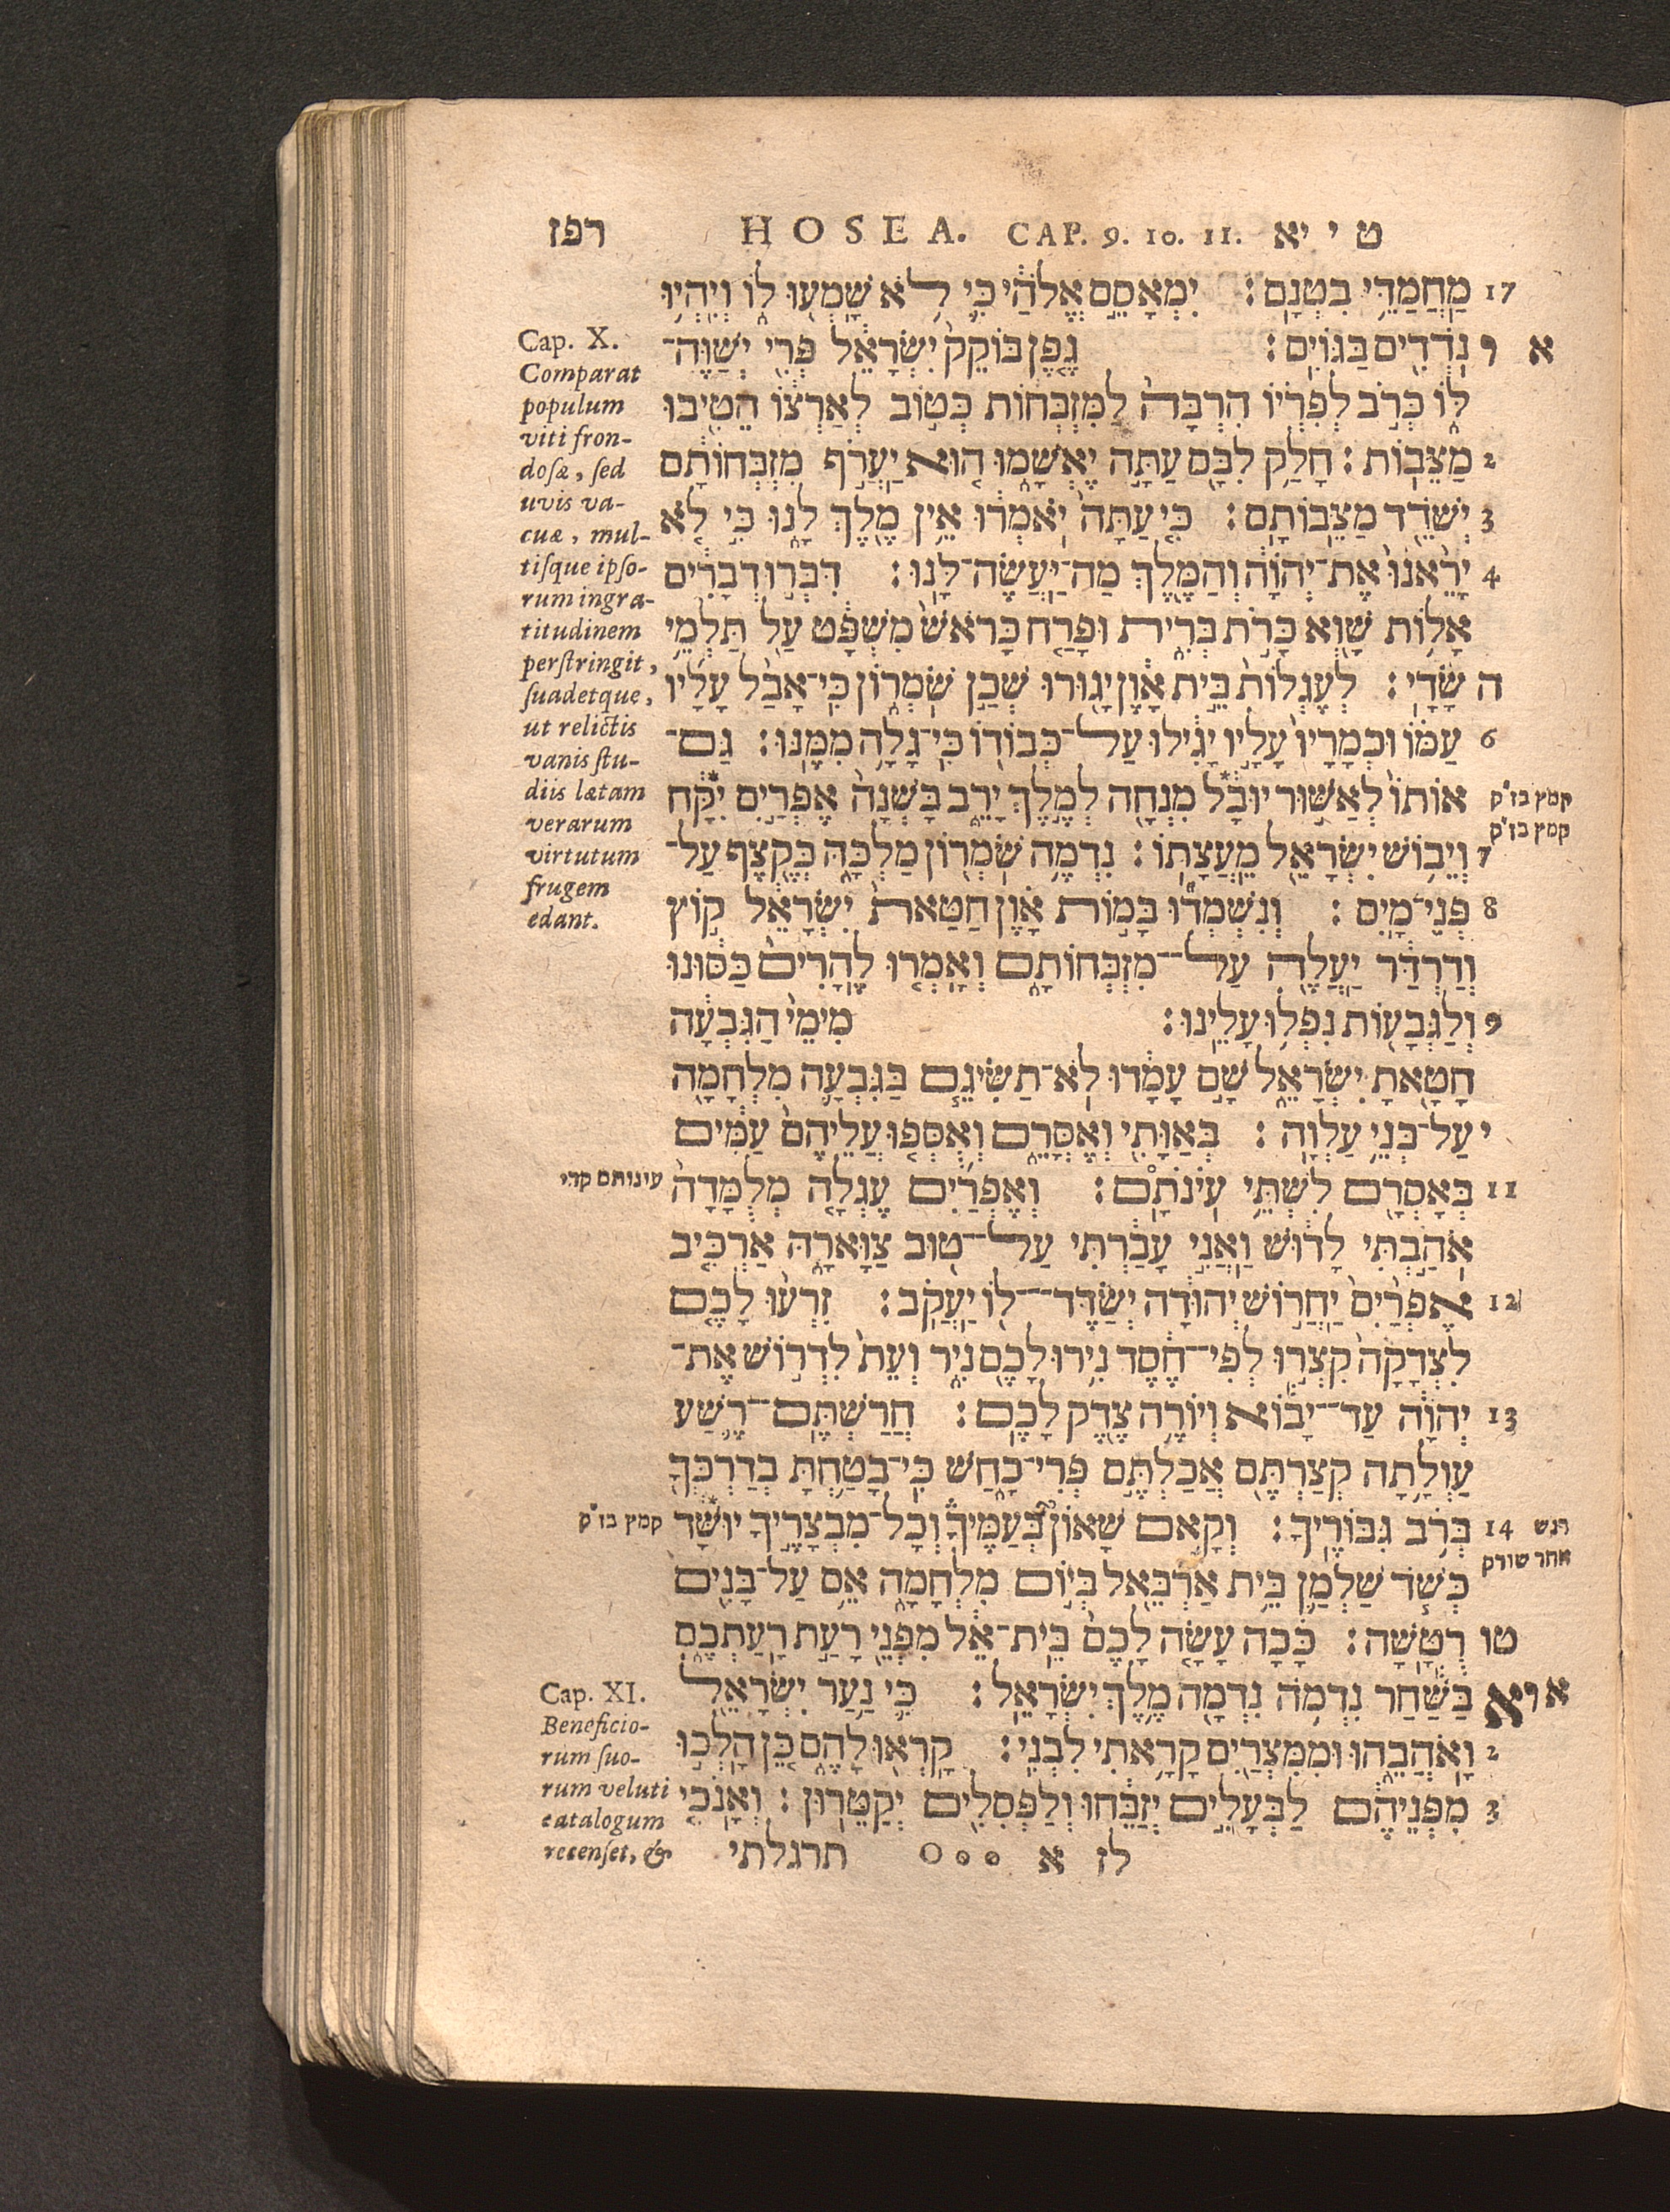 רפז HOSEA. CAP. 9. 10. 11. ט י יא
17 מַחֲמַדֵּ֥י בִטְנָֽם׃ יִמְאָסֵ֣ם אֱלֹהַ֔י כִּ֛י לֹ֥א שָׁמְע֖וּ ל֑וֹ וְיִֽהְי֥וּ
א ו נֹדְדִ֖ים בַּגּוֹיִֽם׃ גֶּ֤פֶן בּוֹקֵק֙ יִשְׂרָאֵ֔ל פְּרִ֖י יְשַׁוֶּה־
לּ֑וֹ כְּרֹ֣ב לְפִרְי֗וֹ הִרְבָּה֙ לַֽמִּזְבְּח֔וֹת כְּט֣וֹב לְאַרְצ֔וֹ הֵטִ֖יבוּ
2 מַצֵּבֽוֹת׃ חָלַ֥ק לִבָּ֖ם עַתָּ֣ה יֶאְשָׁ֑מוּ ה֚וּא יַעֲרֹ֣ף מִזְבְּחוֹתָ֔ם
3 יְשֹׁדֵ֖ד מַצֵּבוֹתָֽם׃ כִּ֤י עַתָּה֙ יֹֽאמְר֔וּ אֵ֥ין מֶ֖לֶךְ לָ֑נוּ כִּ֣י לֹ֤א
4 יָרֵ֙אנוּ֙ אֶת־יְהוָ֔ה וְהַמֶּ֖לֶךְ מַה־יַּֽעֲשֶׂה־לָּֽנוּ׃ דִּבְּר֣וּ דְבָרִ֔ים
אָל֥וֹת שָׁ֖וְא כָּרֹ֣ת בְּרִ֑ית וּפָרַ֤ח כָּרֹאשׁ֙ מִשְׁפָּ֔ט עַ֖ל תַּלְמֵ֥י
ה שָׂדָֽי׃ לְעֶגְלוֹת֙ בֵּ֣ית אָ֔וֶן יָג֖וּרוּ שְׁכַ֣ן שֹֽׁמְר֑וֹן כִּי־אָבַ֨ל עָלָ֜יו
6 עַמּ֗וֹ וּכְמָרָיו֙ עָלָ֣יו יָגִ֔ילוּ עַל־כְּבוֹד֖וֹ כִּֽי־גָלָ֥ה מִמֶּֽנּוּ׃ גַּם־
אוֹתוֹ֙ לְאַשּׁ֣וּר יוּבָ֔ל מִנְחָ֖ה לְמֶ֣לֶךְ יָרֵ֑ב בָּשְׁנָה֙ אֶפְרַ֣יִם יִקָּ֔ח קמץ בז״ק
קמץ בז״ק
7 וְיֵב֥וֹשׁ יִשְׂרָאֵ֖ל מֵעֲצָתֽוֹ׃ נִדְמֶ֥ה שֹׁמְר֖וֹן מַלְכָּ֑הּ כְּקֶ֖צֶף עַל־
8 פְּנֵי־מָֽיִם׃ וְֽנִשְׁמְד֞וּ בָּמ֣וֹת אָ֗וֶן חַטַּאת֙ יִשְׂרָאֵ֔ל ק֣וֹץ
וְדַרְדַּ֔ר יַעֲלֶ֖ה עַל־מִזְבְּחוֹתָ֑ם וְאָמְר֤וּ לֶֽהָרִים֙ כַּסּ֔וּנוּ
9 וְלַגְּבָע֖וֹת נִפְל֥וּ עָלֵֽינוּ׃ מִימֵי֙ הַגִּבְעָ֔ה
חָטָ֖אתָ יִשְׂרָאֵ֑ל שָׁ֣ם עָמָ֔דוּ לֹֽא־תַשִּׂיגֵ֧ם בַּגִּבְעָ֛ה מִלְחָמָ֖ה
י עַל־בְּנֵ֥י עַלְוָֽה׃ בְּאַוָּתִ֖י וְאֶסֳּרֵ֑ם וְאֻסְּפ֤וּ עֲלֵיהֶם֙ עַמִּ֔ים
11 בְּאָסְרָ֖ם לִשְׁתֵּ֥י עֹינֹתָֽם׃ וְאֶפְרַ֜יִם עֶגְלָ֤ה מְלֻמָּדָה֙ עינותם קרי
אֹהַ֣בְתִּי לָד֔וּשׁ וַאֲנִ֣י עָבַ֔רְתִּי עַל־ט֖וּב צַוָּארָ֑הּ אַרְכִּ֤יב
12 אֶפְרַ֙יִם֙ יַחֲר֣וֹשׁ יְהוּדָ֔ה יְשַׂדֶּד־ל֖וֹ יַעֲקֹֽב׃ זִרְע֨וּ לָכֶ֤ם
לִצְדָקָה֙ קִצְר֣וּ לְפִי־חֶ֔סֶד נִ֥ירוּ לָכֶ֖ם נִ֑יר וְעֵת֙ לִדְר֣וֹשׁ אֶת־
13 יְהוָ֔ה עַד־יָב֕וֹא וְיֹרֶ֥ה צֶ֖דֶק לָכֶֽם׃ חֲרַשְׁתֶּם־רֶ֛שַׁע
עַוְלָ֥תָה קְצַרְתֶּ֖ם אֲכַלְתֶּ֣ם פְּרִי־כָ֑חַשׁ כִּֽי־בָטַ֥חְתָּ בְדַרְכְּךָ֖
14 בְּרֹ֥ב גִּבּוֹרֶֽיךָ׃ וְקָ֣אם שָׁאוֹן֮ בְּעַמֶּיךָ֒ וְכָל־מִבְצָרֶ֣יךָ יוּשַּׁ֔ד קמץ בז״ק דגש
אחר שורק
כְּשֹׁ֧ד שַֽׁלְמַ֛ן בֵּ֥ית אַֽרְבֵ֖אל בְּי֣וֹם מִלְחָמָ֑ה אֵ֥ם עַל־בָּנִ֖ים
טו רֻטָּֽשָׁה׃ כָּ֗כָה עָשָׂ֤ה לָכֶם֙ בֵּֽית־אֵ֔ל מִפְּנֵ֖י רָעַ֣ת רָֽעַתְכֶ֑ם
א ו יא בַּשַּׁ֕חַר נִדְמֹ֥ה נִדְמָ֖ה מֶ֥לֶךְ יִשְׂרָאֵֽל׃ כִּ֛י נַ֥עַר יִשְׂרָאֵ֖ל
2 וָאֹהֲבֵ֑הוּ וּמִמִּצְרַ֖יִם קָרָ֥אתִי לִבְנִֽי׃ קָרְא֖וּ לָהֶ֑ם כֵּ֚ן הָלְכ֣וּ
3 מִפְּנֵיהֶ֔ם לַבְּעָלִ֣ים יְזַבֵּ֔חוּ וְלַפְּסִלִ֖ים יְקַטֵּרֽוּן׃ וְאָנֹכִ֤י
לז א תרגלתי
Cap. X.
Comparat
populum
viti fron-
dosæ, sed
uvis va-
cuæ, mul-
tisque ipso-
rum ingra-
titudinem
perstringit,
suadetque,
ut relictis
vanis stu-
diis lætam
verarum
virtutum
frugem
edant.
Cap. XI.
Beneficio-
rum suo-
rum veluti
catalogum
recenset, &